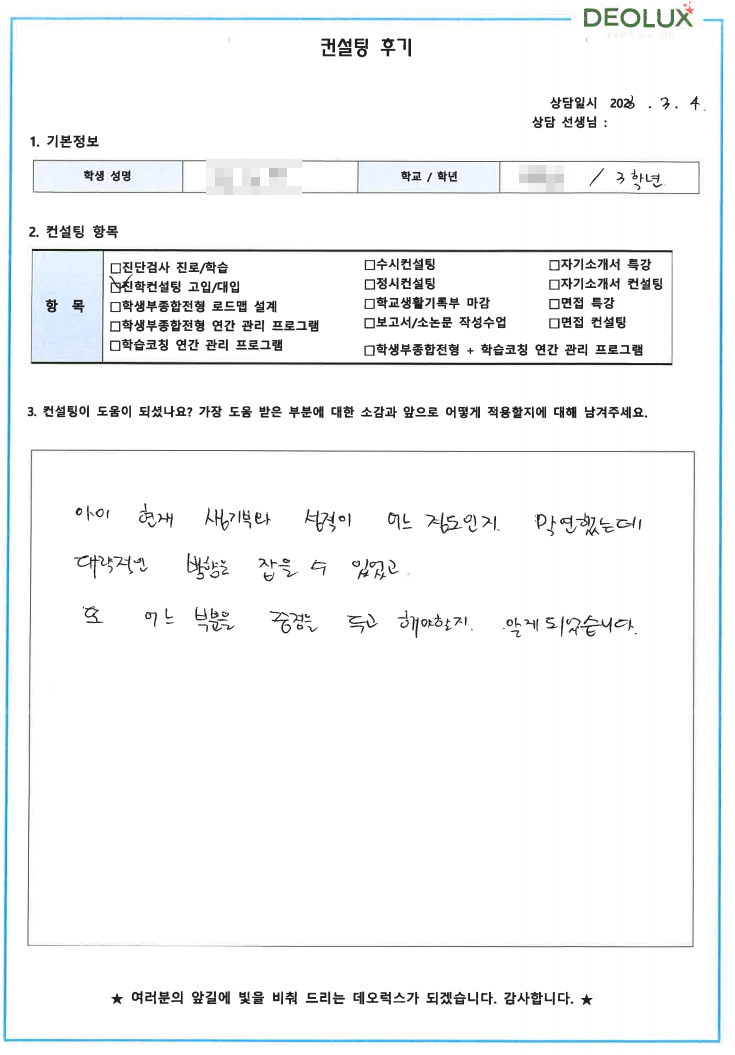 DEOLUX
컨설팅 후기
상담일시 2023 . 3. 4.
상담 선생님 :
1. 기본정보
학생 성명 학교 / 학년 / 3학년
2. 컨설팅 항목
항 목
□진단검사 진로/학습 □수시컨설팅 □자기소개서 특강
☑진학컨설팅 고입/대입 □정시컨설팅 □자기소개서 컨설팅
□학생부종합전형 로드맵 설계 □학교생활기록부 마감 □면접 특강
□학생부종합전형 연간 관리 프로그램 □보고서/소논문 작성수업 □면접 컨설팅
□학습코칭 연간 관리 프로그램 □학생부종합전형 + 학습코칭 연간 관리 프로그램
3. 컨설팅이 도움이 되셨나요? 가장 도움 받은 부분에 대한 소감과 앞으로 어떻게 적용할지에 대해 남겨주세요.
아이 현재 생기부와 성적이 어느 정도인지 막연했는데
대략적인 방향을 잡을 수 있었고
또 어느 부분을 중점을 두고 해야할지 알게 되었습니다.
★ 여러분의 앞길에 빛을 비춰 드리는 데오럭스가 되겠습니다. 감사합니다. ★